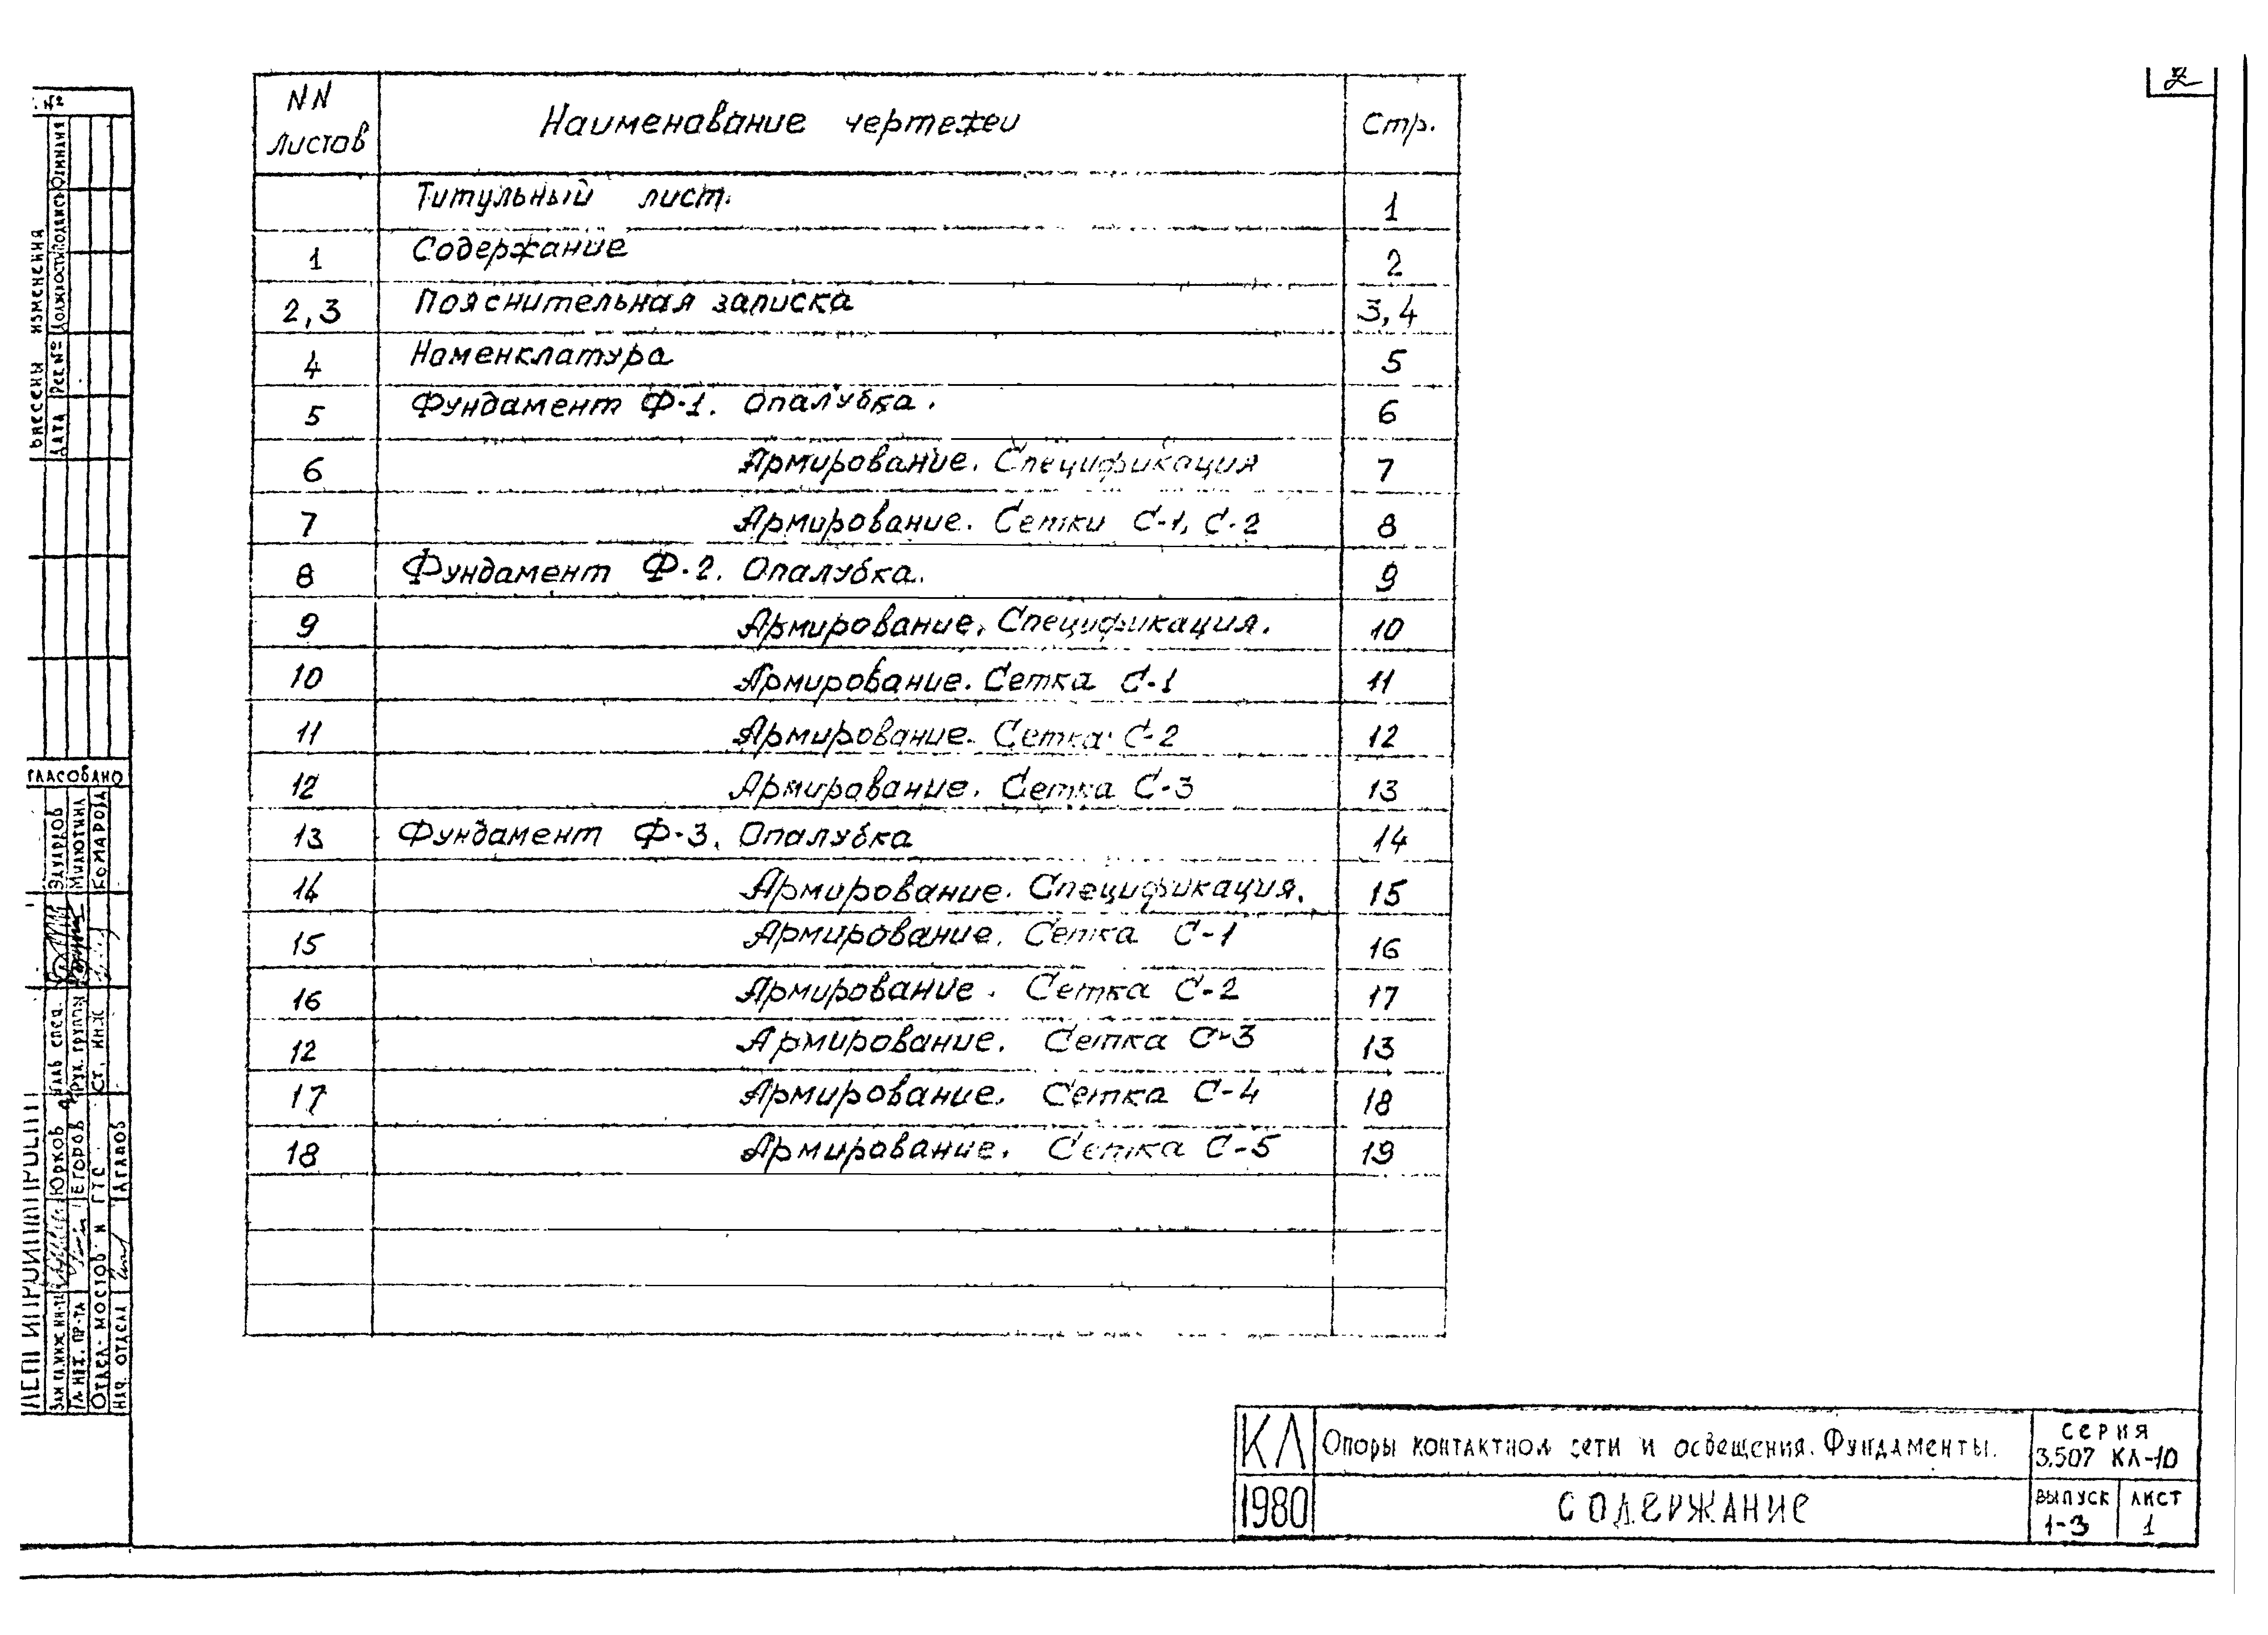 2
NN листов Наименование чертежей Стр.
Титульный лист. 1
1 Содержание 2
2,3 Пояснительная записка 3,4
4 Номенклатура 5
5 Фундамент Ф-1. Опалубка. 6
6 Армирование. Спецификация 7
7 Армирование. Сетки С-1, С-2 8
8 Фундамент Ф-2. Опалубка. 9
9 Армирование. Спецификация. 10
10 Армирование. Сетка С-1 11
11 Армирование. Сетка С-2 12
12 Армирование. Сетка С-3 13
13 Фундамент Ф-3. Опалубка 14
14 Армирование. Спецификация. 15
15 Армирование. Сетка С-1 16
16 Армирование. Сетка С-2 17
12 Армирование. Сетка С-3 13
17 Армирование. Сетка С-4 18
18 Армирование. Сетка С-5 19
КЛ Опоры контактной сети и освещения. Фундаменты. СЕРИЯ 3.507 КЛ-10
1980 СОДЕРЖАНИЕ ВЫПУСК 1-3 ЛИСТ 1
№2
ВНЕСЕНЫ ИЗМЕНЕНИЯ
ДАТА
ГЛАСОВАНО
МИЛЮТИНА
КОМАРОВА
РУК. ГРУППЫ
СТ. ИНЖ
ЮРКОВ
ЕГОРОВ
АГАПОВ
ГЛ. ИНЖ. ПР-ТА
ОТДЕЛ МОСТОВ И ГТС
НАЧ. ОТДЕЛА